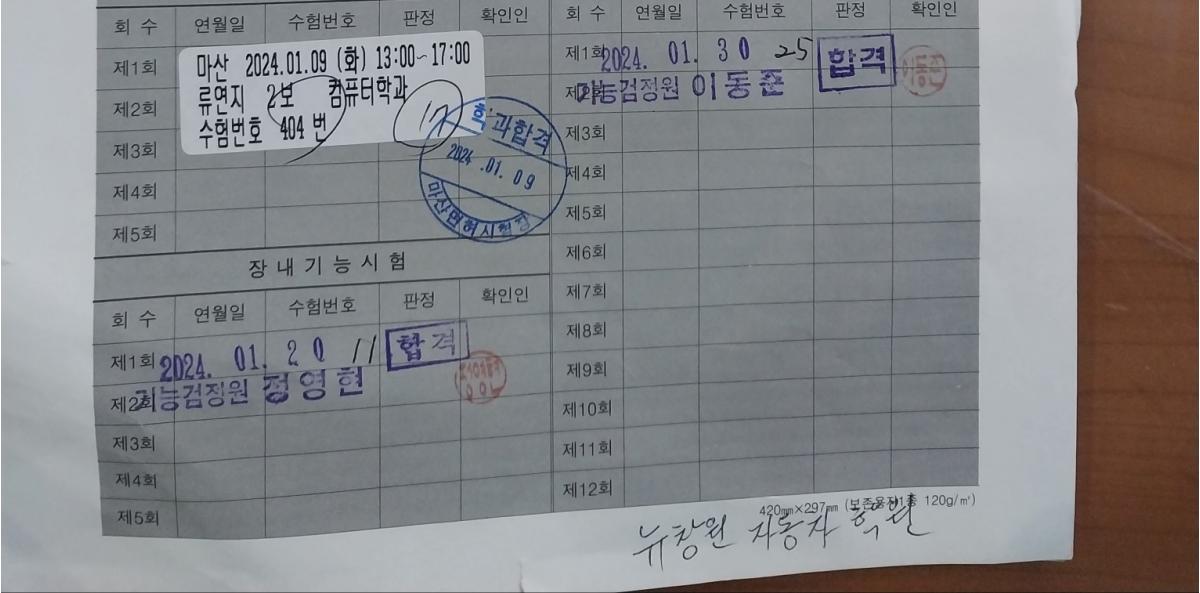 회 수 연월일 수험번호 판정 확인인
제1회
마산 2024.01.09 (화) 13:00~17:00
제2회
류연지 2보 컴퓨터학과
수험번호 404 번
17
제3회
학과합격
2024.01.09
마산면허시험장
제4회
제5회
장내기능시험
회 수 연월일 수험번호 판정 확인인
제1회 2024. 01. 20 11 합격
제2회 기능검정원 정영현
제3회
제4회
제5회
회 수 연월일 수험번호 판정 확인인
제1회 2024. 01. 30 25 합격 이동준
제2회 기능검정원 이동준
제3회
제4회
제5회
제6회
제7회
제8회
제9회
제10회
제11회
제12회
420㎜×297㎜ (보존용지1종 120g/㎡)
뉴창원 자동차 학원